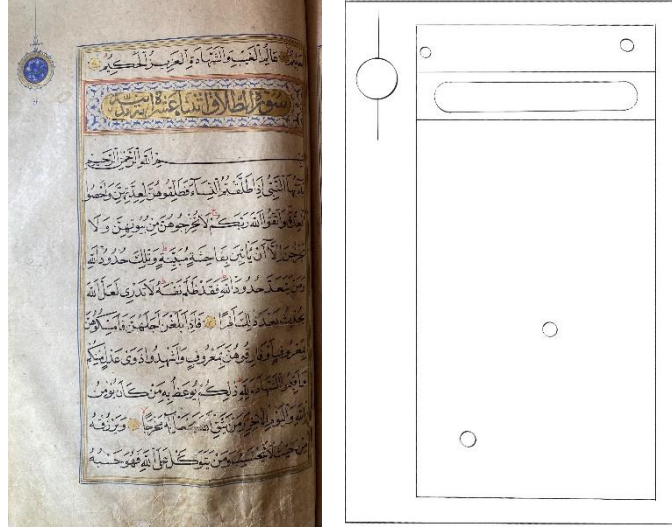 حَلِيمٌ عَالِمُ الْغَيْبِ وَالشَّهَادَةِ الْعَزِيزُ الْحَكِيمُ
سورة الطلاق اثنتا عشرة آية
بِسْمِ اللَّهِ الرَّحْمَنِ الرَّحِيمِ
يَا أَيُّهَا النَّبِيُّ إِذَا طَلَّقْتُمُ النِّسَاءَ فَطَلِّقُوهُنَّ لِعِدَّتِهِنَّ وَأَحْصُوا
الْعِدَّةَ وَاتَّقُوا اللَّهَ رَبَّكُمْ لَا تُخْرِجُوهُنَّ مِنْ بُيُوتِهِنَّ وَلَا
يَخْرُجْنَ إِلَّا أَنْ يَأْتِينَ بِفَاحِشَةٍ مُبَيِّنَةٍ وَتِلْكَ حُدُودُ اللَّهِ
وَمَنْ يَتَعَدَّ حُدُودَ اللَّهِ فَقَدْ ظَلَمَ نَفْسَهُ لَا تَدْرِي لَعَلَّ اللَّهَ
يُحْدِثُ بَعْدَ ذَلِكَ أَمْرًا فَإِذَا بَلَغْنَ أَجَلَهُنَّ فَأَمْسِكُوهُنَّ
بِمَعْرُوفٍ أَوْ فَارِقُوهُنَّ بِمَعْرُوفٍ وَأَشْهِدُوا ذَوَيْ عَدْلٍ مِنْكُمْ
وَأَقِيمُوا الشَّهَادَةَ لِلَّهِ ذَلِكُمْ يُوعَظُ بِهِ مَنْ كَانَ يُؤْمِنُ
بِاللَّهِ وَالْيَوْمِ الْآخِرِ وَمَنْ يَتَّقِ اللَّهَ يَجْعَلْ لَهُ مَخْرَجًا وَيَرْزُقْهُ
مِنْ حَيْثُ لَا يَحْتَسِبُ وَمَنْ يَتَوَكَّلْ عَلَى اللَّهِ فَهُوَ حَسْبُهُ